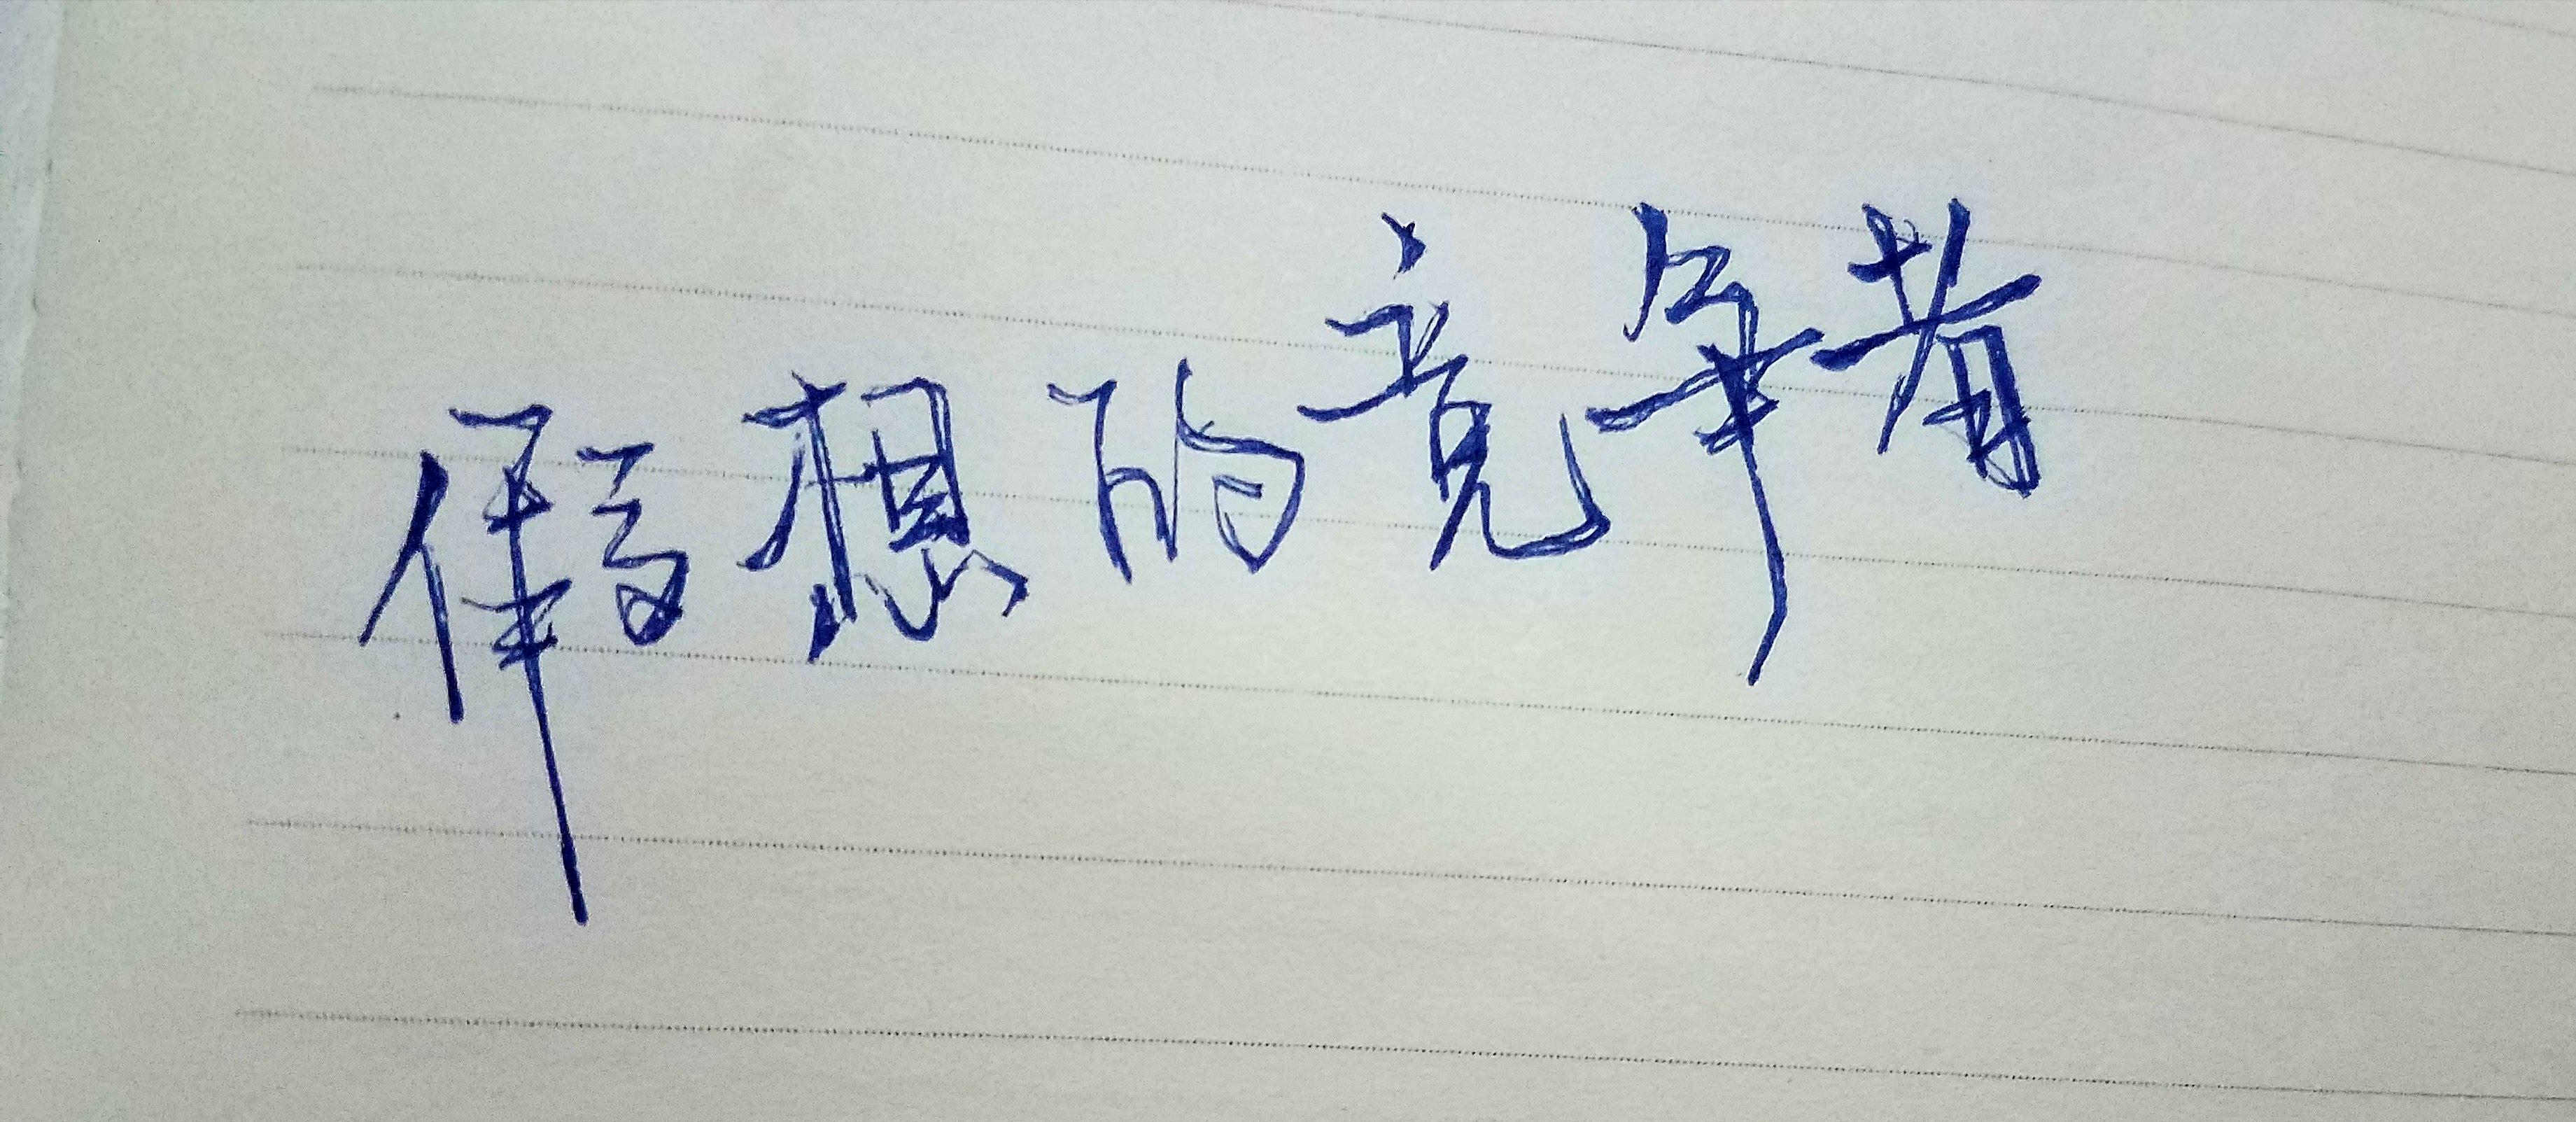 假想的竞争者